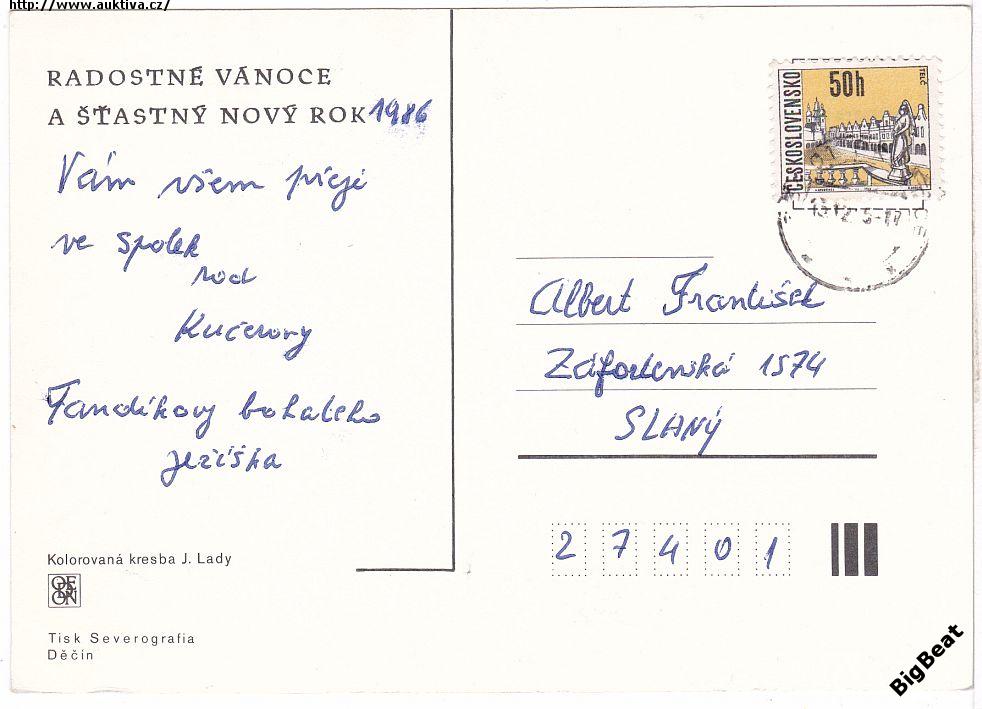 http://www.auktiva.cz/
RADOSTNÉ VÁNOCE
A ŠŤASTNÝ NOVÝ ROK 1986
Vám všem přeje
ve spolek
rod
Kučerovy
Fandíkovy bohatého
ježíška
Kolorovaná kresba J. Lady
ODEON
Tisk Severografia
Děčín
ČESKOSLOVENSKO
50h
TELČ
Albert František
1574
SLANÝ
27401
BigBeat